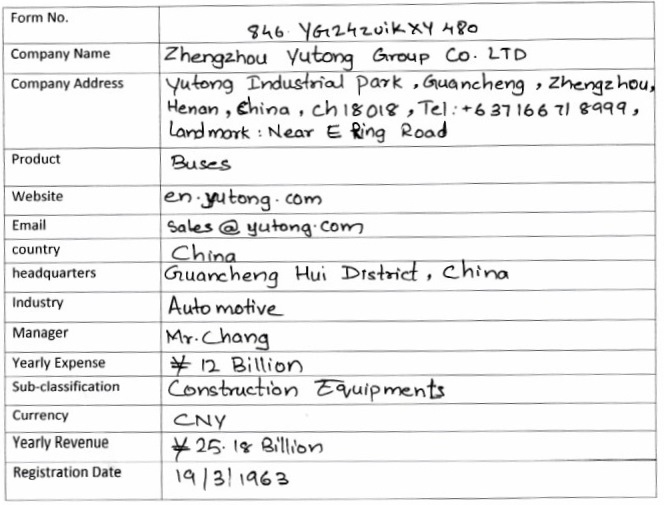 Form No. 846 YG124zvikXY 480
Company Name Zhengzhou Yutong Group Co. LTD
Company Address Yutong Industrial Park, Guancheng, Zhengzhou,
Henan, China, Ch 18018, Tel: +6 37166 71 8999,
Landmark: Near E Ring Road
Product Buses
Website en.yutong.com
Email Sales@yutong.com
country China
headquarters Guancheng Hui District, China
Industry Automotive
Manager Mr. Chang
Yearly Expense ¥ 12 Billion
Sub-classification Construction Equipments
Currency CNY
Yearly Revenue ¥ 25.18 Billion
Registration Date 19/3/1963